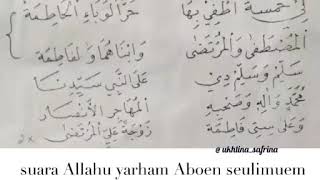 لِي خَمْسَةٌ أُطْفِي بِهَا حَرَّ الْوَبَاءِ الْحَاطِمَةْ
الْمُصْطَفَى وَالْمُرْتَضَى وَابْنَاهُمَا وَالْفَاطِمَةْ
سَلِّمْ وَسَلِّمْ دِي عَلَى النَّبِي سَيِّدِنَا
مُحَمَّدْ وَالِهْ وَصَحْبِهْ الْمُهَاجِرْ الْأَنْصَارْ
وَعَلَى سِتِي فَاطِمَةْ زَوْجَةْ عَلِي الْمُرْتَضَى
@ukhlina_safrina
suara Allahu yarham Aboen seulimuem